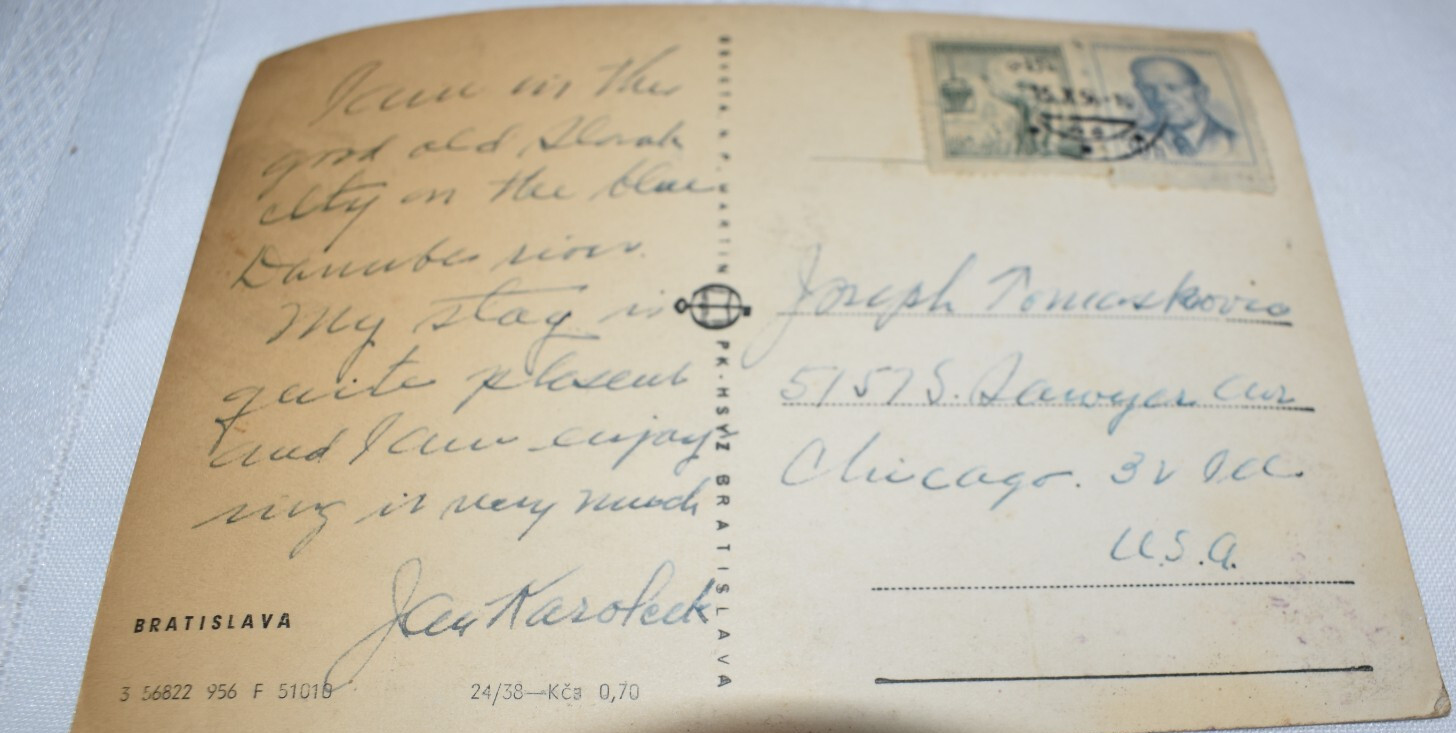 I am in the
good old Slovak
city on the blue
Danube river.
My stay is
quite plasent
and I am enjoy
ing it very much
Jan Karolcik
BRATISLAVA
3 56822 956 F 51010
24/38—Kčs 0,70
MARTIN
PK-HSVZ BRATISLAVA
Joseph Tomaskovic
5157 S. Sawyer Ave
Chicago. 32 Ill
U.S.A.